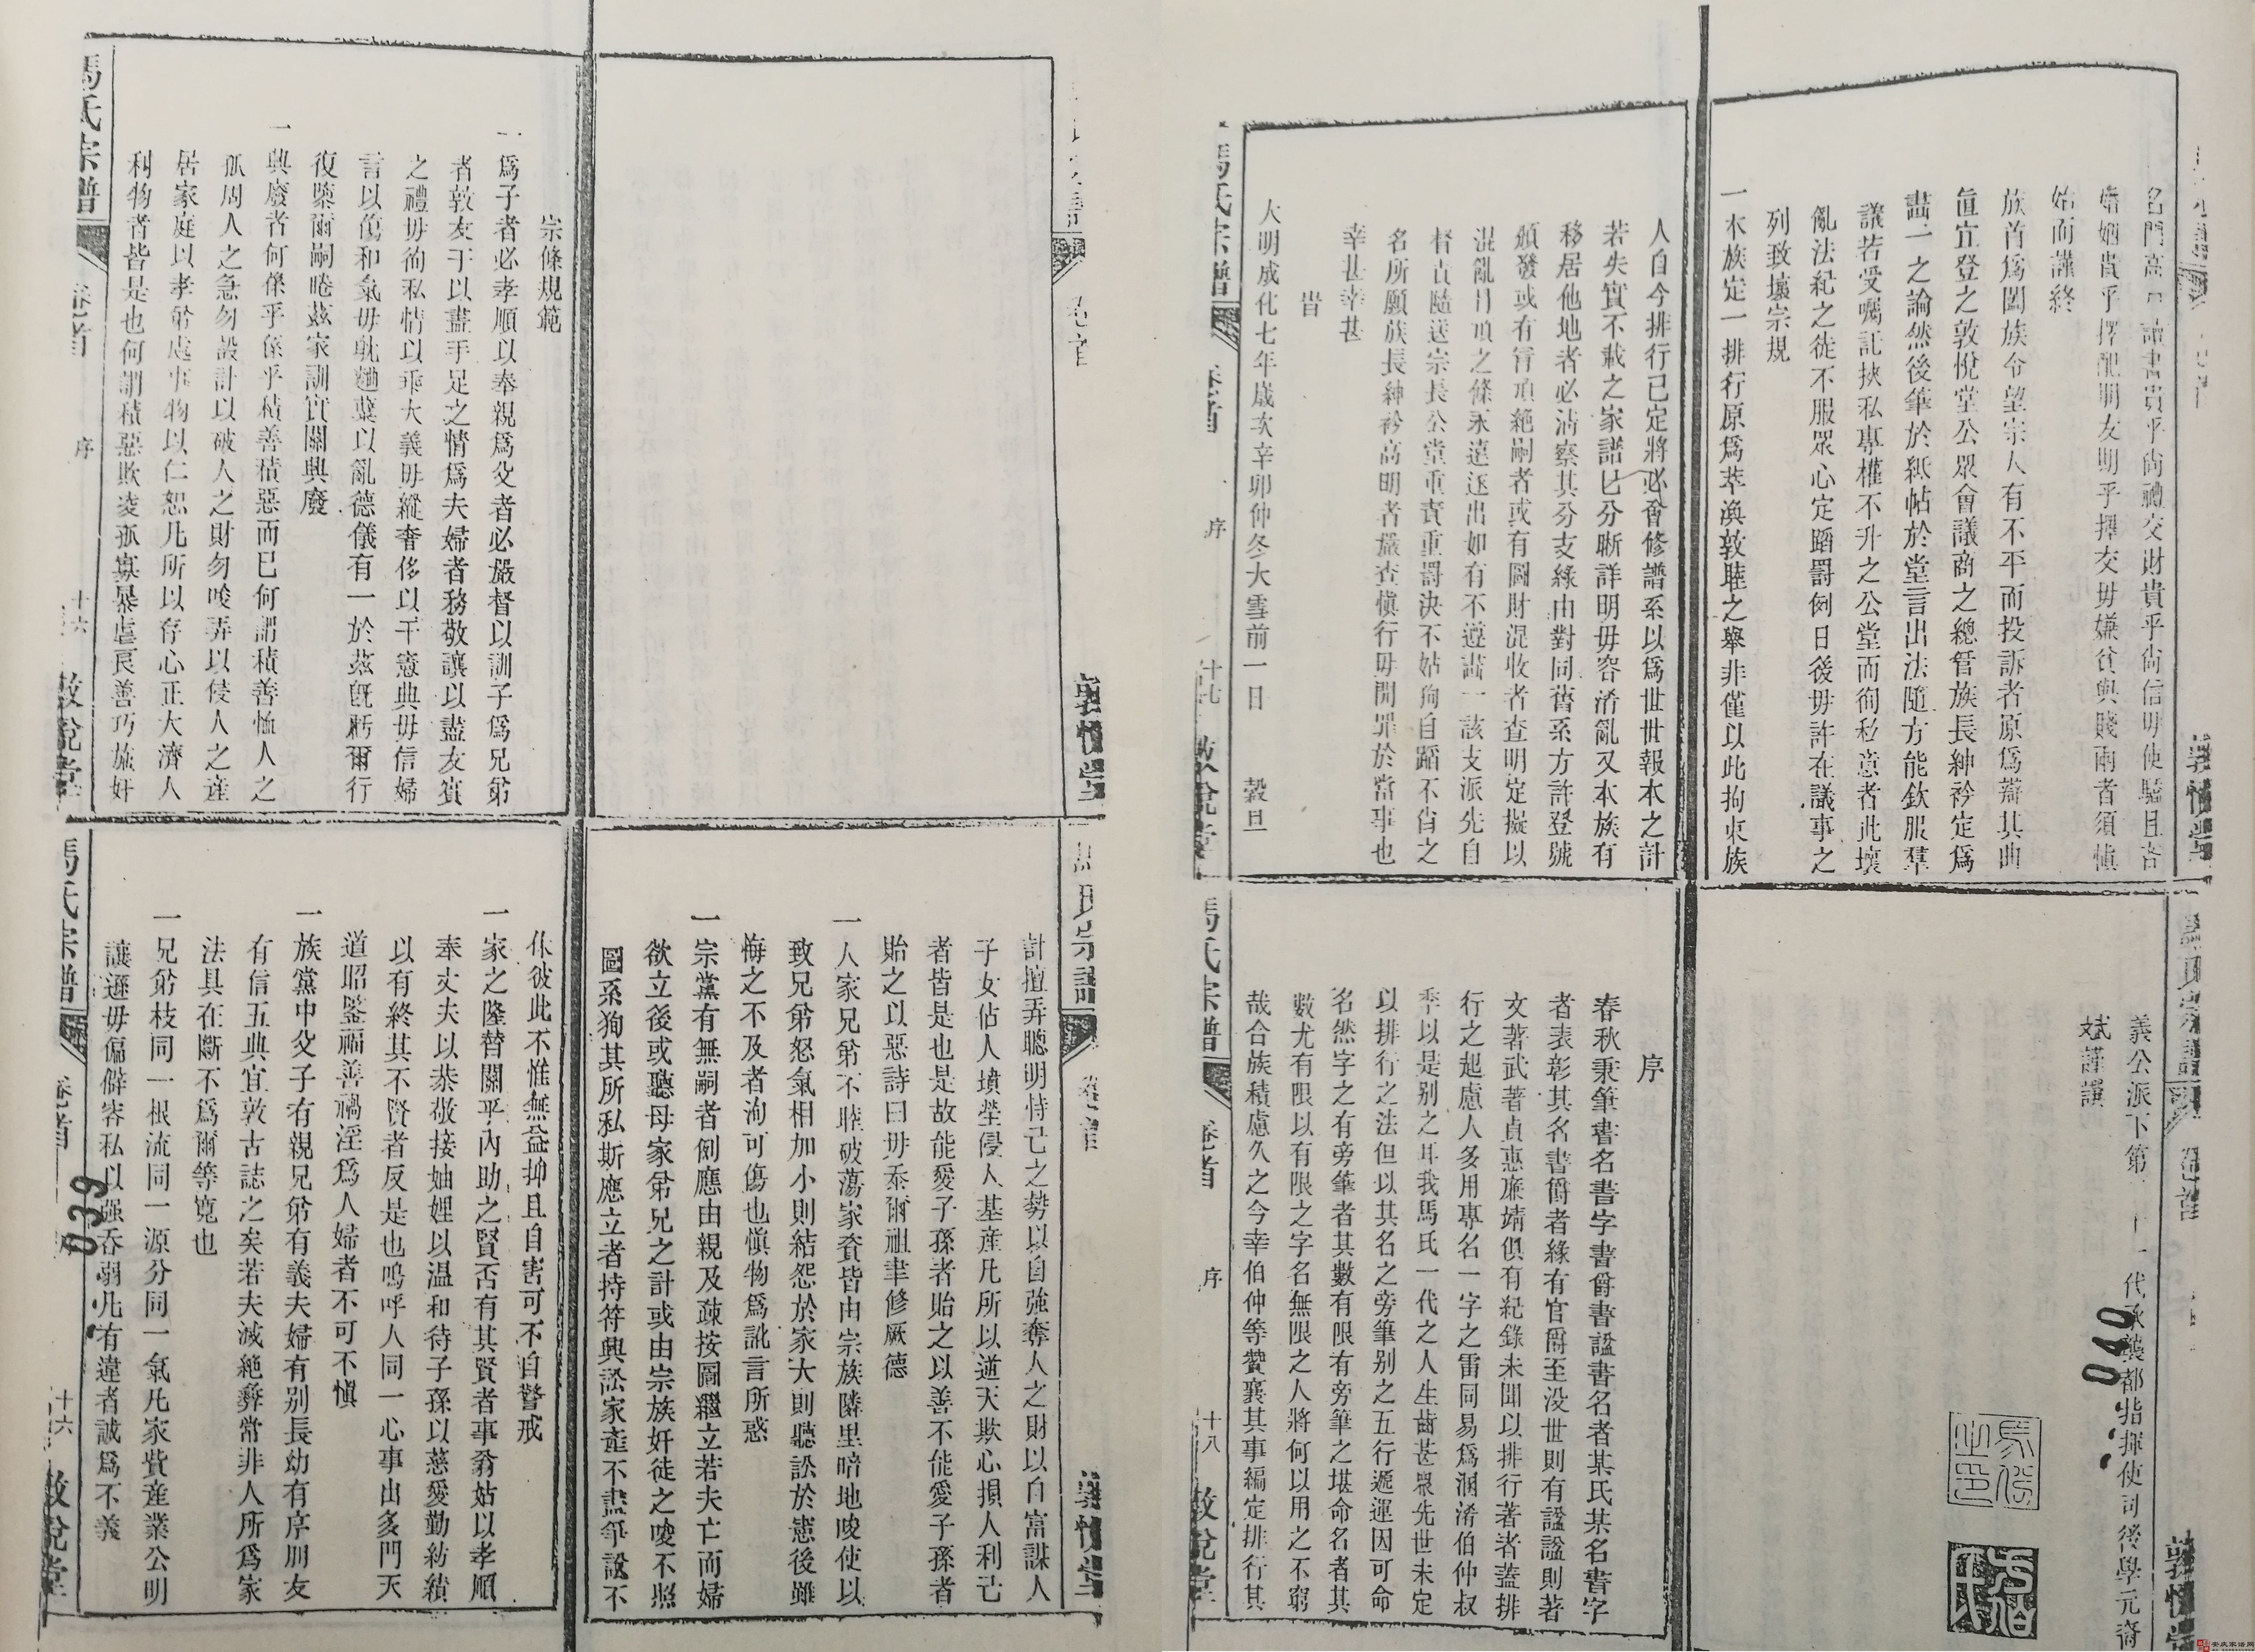 馬氏宗譜
卷首
序
十六
敦悅堂
宗條規範
一爲子者必孝順以奉親爲父者必嚴督以訓子爲兄弟
者敦友于以盡手足之情爲夫婦者務敬讓以盡友賓
之禮毋徇私情以乖大義毋縱奢侈以干憲典毋信婦
言以傷和氣毋耽麯蘖以亂德儀有一於茲旣虧爾行
復墜爾嗣睠茲家訓實關興廢
一興廢者何係乎係乎積善積惡而已何謂積善恤人之
孤周人之急勿設計以破人之財勿唆弄以侵人之產
居家庭以孝弟處事物以仁恕凡所以存心正大濟人
利物者皆是也何謂積惡欺凌孤寡暴虐良善巧施奸
計擅弄聰明恃己之勢以自強奪人之財以自富謀人
子女佔人墳塋侵人基產凡所以逆天欺心損人利己
者皆是也是故能愛子孫者貽之以善不能愛子孫者
貽之以惡詩曰毋忝爾祖聿修厥德
一人家兄弟不睦破蕩家資皆由宗族隣里暗地唆使以
致兄弟怒氣相加小則結怨於家大則聽訟於憲後雖
悔之不及者洵可傷也愼物爲訛言所惑
一宗黨有無嗣者例應由親及疎按圖繼立若夫亡而婦
欲立後或聽母家弟兄之計或由宗族奸徒之唆不照
圖系狥其所私斯應立者持符興訟家產不盡爭訟不
休彼此不惟無益抑且自害可不自警戒
一家之隆替關乎內助之賢否有其賢者事翁姑以孝順
奉丈夫以恭敬接妯娌以溫和待子孫以慈愛勤紡績
以有終其不賢者反是也嗚呼人同一心事出多門天
道昭鑒福善禍淫爲人婦者不可不愼
一族黨中父子有親兄弟有義夫婦有別長幼有序朋友
有信五典宜敦古誌之矣若夫滅絶彝常非人所爲家
法具在斷不爲爾等寬也
一兄弟枝同一根流同一源分同一氣凡家貲產業公明
讓遜毋偏僻容私以強吞弱凡有違者誠爲不義
馬氏宗譜
卷首
十六
敦悅堂
039
名門高
讀書貴乎尚禮交財貴乎尚信毋使驕且吝
婚姻貴乎擇配朋友期乎擇交毋嫌貧與賤兩者須愼
始而謹終
族首爲闔族令望宗人有不平而投訴者原爲辯其曲
直宜登之敦悅堂公眾會議商之總管族長紳衿定爲
畫一之論然後筆於紙帖於堂言出法隨方能欽服羣
議若受囑託挾私專權不升之公堂而徇私意者此壞
亂法紀之徒不服眾心定蹈罰例日後毋許在議事之
列致壞宗規
一本族定一排行原爲萃渙敦睦之舉非僅以此拘束族
人自今排行已定將必會修譜系以爲世世報本之計
若失實不載之家譜已分晰詳明毋容淆亂又本族有
移居他地者必清察其分支緣由對同舊系方許登號
頒發或有冒頂絶嗣者或有圖財混收者查明定擬以
混亂冒頂之條永遠逐出如有不遵畫一該支派先自
督責隨送宗長公堂重責重罰決不姑狥自蹈不肖之
名所願族長紳衿高明者嚴查愼行毋開罪於當事也
幸甚幸甚
旹
大明成化七年歲次辛卯仲冬大雪前一日 穀旦
馬氏宗譜
卷首
序
十七
敦悅堂
義公派下第
一代承襲都指揮使司後學元齋
斌謹譔
040
序
春秋秉筆書名書字書爵書諡書名者某氏某名書字
者表彰其名書爵者緣有官爵至没世則有諡諡則著
文著武著貞惠廉靖俱有紀錄未聞以排行著者蓋排
行之起慮人多用專名一字之雷同易爲溷淆伯仲叔
季以是别之耳我馬氏一代之人生齒甚眾先世未定
以排行之法但以其名之旁筆别之五行遞運因可命
名然字之有旁筆者其數有限有旁筆之堪命名者其
數尤有限以有限之字名無限之人將何以用之不窮
哉合族積慮久之今幸伯仲等贊襄其事編定排行其
馬氏宗譜
卷首
序
十八
敦悅堂